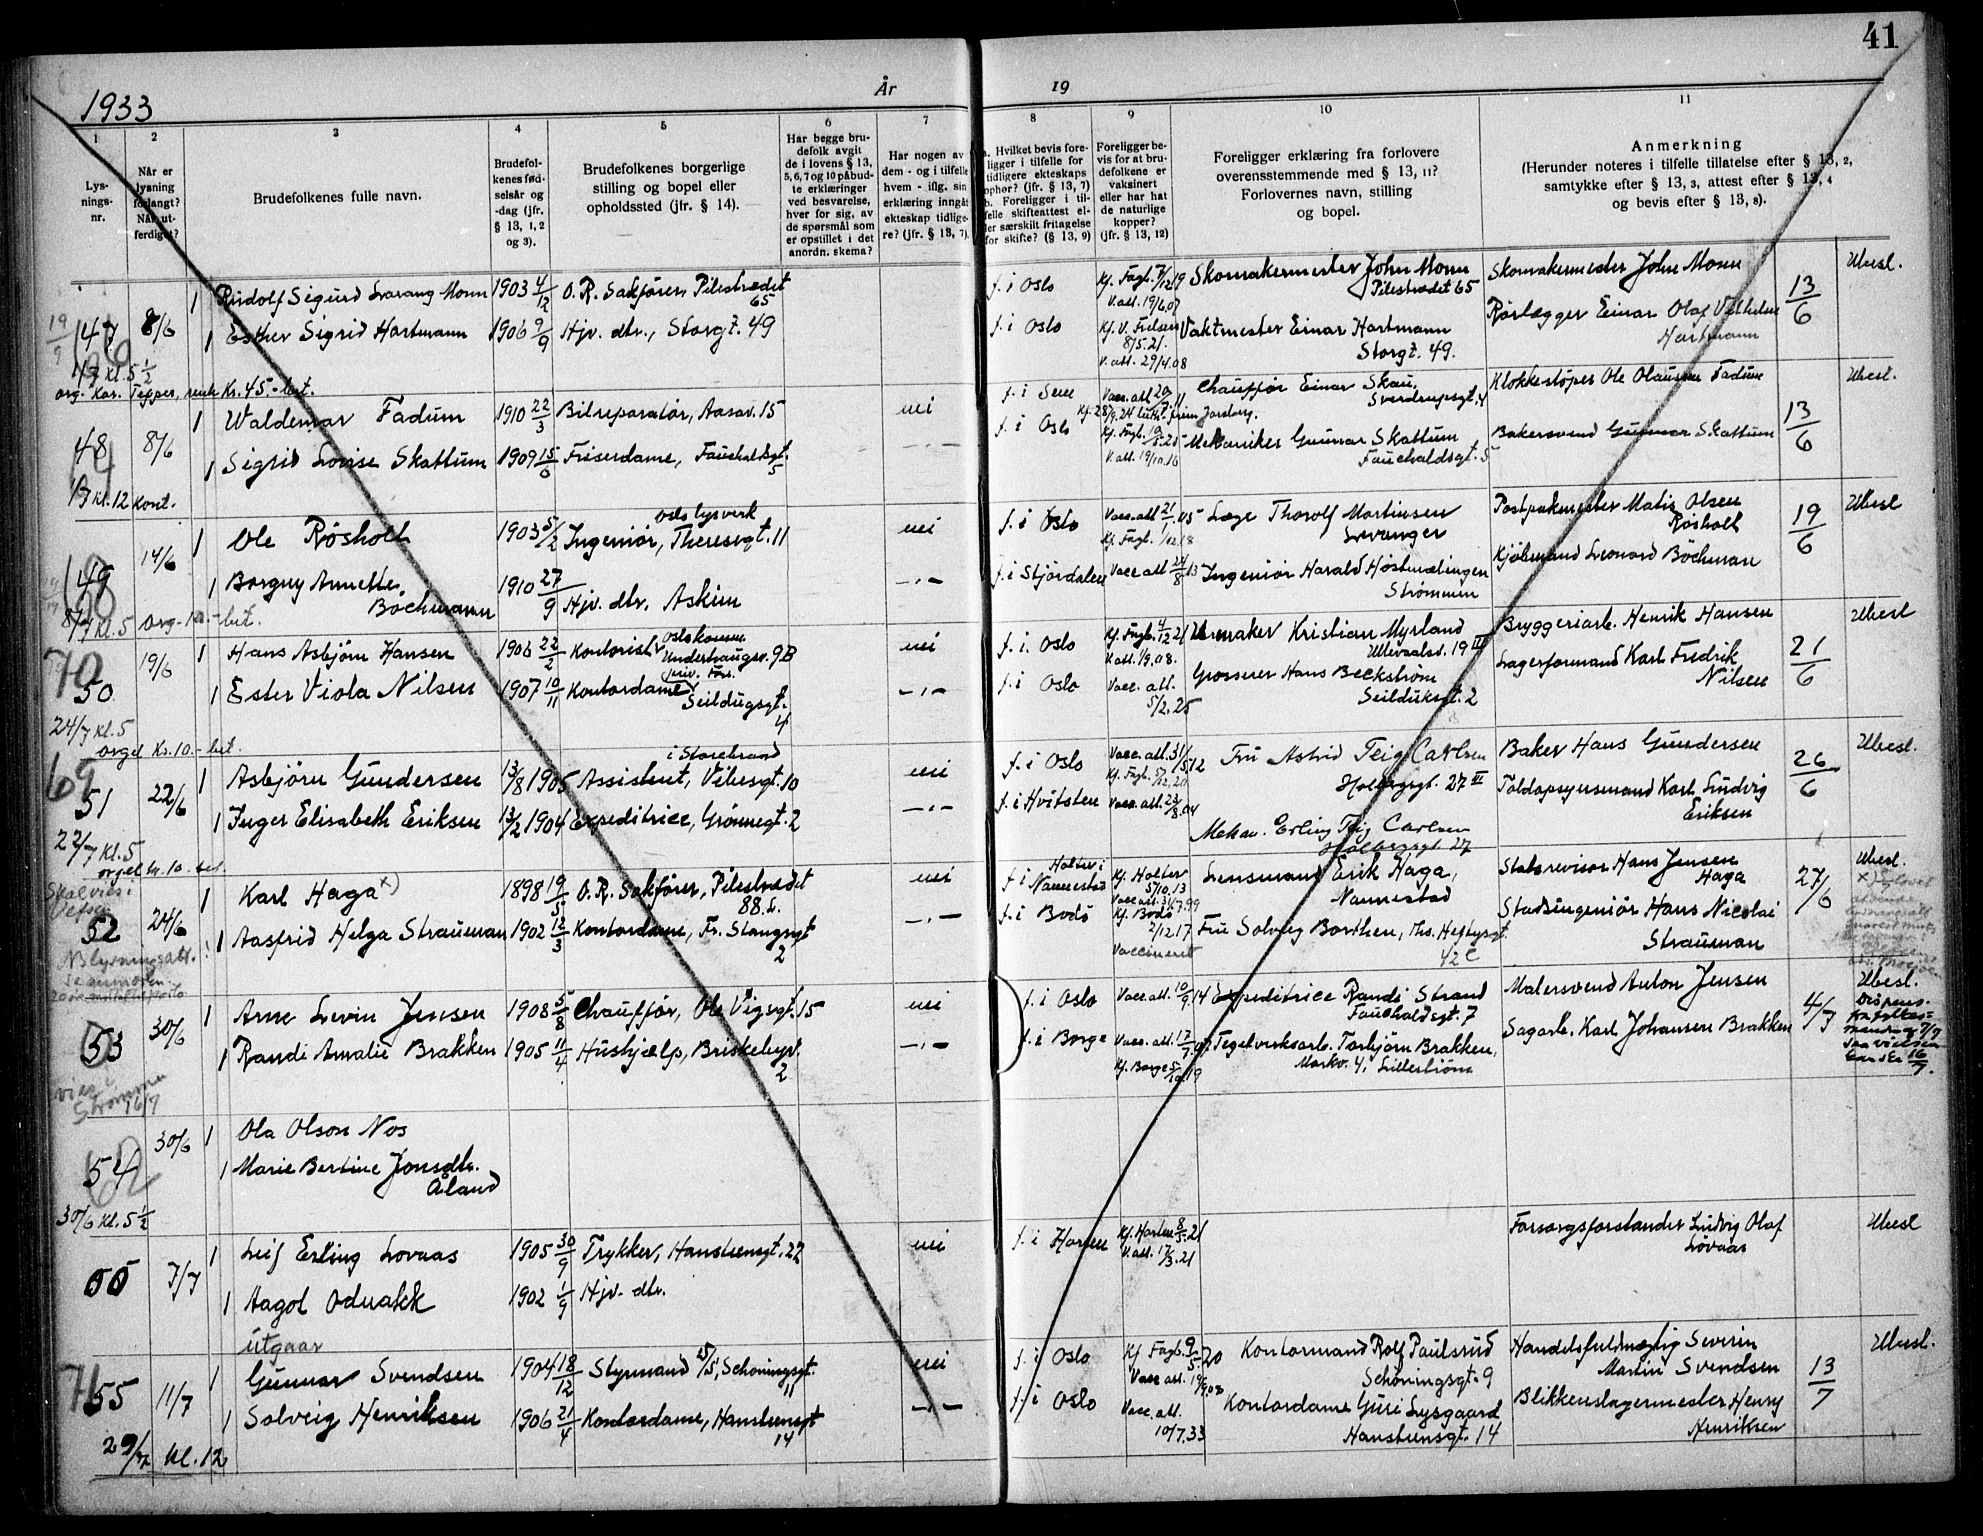 41
1933
År
19
1
2
3
4
5
6
7
8
9
10
11
Lys-
nings-
nr.
Når er
lysning
forlangt?
Når ut-
ferdiget?
Brudefolkenes fulle navn.
Brudefol-
kenes fød-
selsår og
-dag (jfr.
§ 13, 1, 2
og 3).
Brudefolkenes borgerlige
stilling og bopel eller
opholdssted (jfr. § 14).
Har begge bru-
defolk avgit
de i lovens § 13,
5, 6, 7 og 10 påbud-
te erklæringer
ved besvarelse,
hver for sig, av
de spørsmål som
er opstillet i det
anordn. skema?
Har nogen av
dem - og i tilfelle
hvem - iflg. sin
erklæring inngåt
ekteskap tidlige-
re? (jfr. § 13, 7).
a. Hvilket bevis fore-
ligger i tilfelle for
tidligere ekteskaps
ophør? (jfr. § 13, 7)
b. Foreligger i til-
felle skifteattest el-
ler særskilt fritagelse
for skifte? (§ 13, 9)
Foreligger be-
vis for at bru-
defolkene er
vaksinert
eller har hat
de naturlige
kopper?
(jfr. § 13, 12)
Foreligger erklæring fra forlovere
overensstemmende med § 13, 11?
Forlovernes navn, stilling
og bopel.
Anmerkning
(Herunder noteres i tilfelle tillatelse efter § 13, 2,
samtykke efter § 13, 3, attest efter § 13, 4
og bevis efter § 13, 8).
47 8/6 1 Rudolf Sigurd Monn 1903 4/12 O.R. Sakfører, Pilestrædet 65 f. i Oslo Kf. Fagl. 7/12 19 V. att. 19/6.07 Skomakermester John Monn Pilestrædet 65 Skomakermester John Monn 13/6 Ubesl.
1 Esther Sigrid Hartmann 1906 9/9 Hjv. dtr., Storgt. 49 f. i Oslo 8/5.21. V. att. 29/4.08 Vaktmester Einar Hartmann Storgt. 49. Rørlægger Einar Olaf Vilhelm Hartmann
kl. 5 1/2
Kr. 45.- bet.
48 8/6 1 Waldemar Fadum 1910 22/3 Bilreparatør, Aasav. 15 nei f. i Sem Vacc. att. Chauffør Einar Skau, Sverdrupsgt. 4 Klokkestøper Ole Olaussen Fadum 13/6 Ubesl.
1 Sigrid Lovise Skattum 1909 15/6 Friserdame, Fauchaldsgt. 5 f. i Oslo V. att. 19/10.16 Mekaniker Gunnar Skattum Fauchaldsgt. 5 Bakersvend Gunnar Skattum
kl. 12 kont.
49 14/6 1 Ole Røsholt 1903 5/2 Oslo lysverk Ingeniør, Theresesgt. 11 nei f. i Oslo Læge Thorolf Martinsen Levanger Postpakmester Mathis Olsen Røsholt 19/6 Ubesl
1 Borgny Annette Bøchmann 1910 27/9 Hjv. dtr. Askim —„— f. i Stjørdalen Vacc. att. 24/8 13 Ingeniør Harald Høstmælingen Strømmen Kjøbmand Leonard Böchman
8/7 kl. 5 org. 10.- bet.
70
50 19/6 1 Hans Asbjørn Hansen 1906 22/2 Kontorist Oslo komm. Underhaugsv. 9B nei f. i. Oslo V. att. 1/9.08. Urmaker Kristian Myrland Ullevaalsv. 19 III Bryggeriarb. Henrik Hansen 21/6 Ubesl
1 Ester Viola Nilsen 1907 10/11 Kontordame Seildugsgt. 4 —„— f. i Oslo Vacc. att. 5/2.25 Grosserer Hans Beckstrøm Seilduksgt. 2 Lagerformand Karl Fredrik Nilsen
24/7 kl. 5
orgel Kr. 10.- bet.
69
51 22/6 1 Asbjørn Gundersen 13/8 1905 i Storebrand Assistent, Vibesgt. 10 nei f. i Oslo Vacc. att. 31/5.12 Fru Astrid Teig Carlsen Holbergsgt. 27 III Baker Hans Gundersen 26/6 Ubesl.
1 Inger Elisabeth Eriksen 13/2 1904 Expeditrice, Grønnegt. 2 —„— f. i Hvitsten Vacc. att. 22/8.04 Mekan. Erling Teig Carlsen Holbergsgt 27 Toldopsynsmand Karl Ludvig Eriksen
22/7 kl. 5
orgel kr. 10.- bet.
Skal vies i
Vefsen
52 24/6 1 Karl Haga x) 1898 19/5 O.R. Sakfører, Pilestrædet 88. nei f. i Holter i Nannestad Kf. Holter 5/10.13 Lensmand Erik Haga, Nannestad Statsrevisor Hans Jensen Haga 27/6 Ubesl.
1 Aasfrid Helga Strauman 1902 12/3 Kontordame, Fr. Stangsgt 2 —„— f. i Bodö Kf. Bodö 2/12.17 Vaccineret Fru Solveig Borthen, Ths. Heftysgt. 42 C Stadsingeniør Hans Nicolai Strauman
NB lysningsatt.
53 30/6 1 Arne Levin Jensen 1908 5/8 Chauffør, Ole Vigsgt. 15 nei f. i Oslo Vacc. att. 10/9 14 Expeditrice Randi Strand Fauchaldsgt. 7 Malersvend Anton Jensen 4/7 Ubesl.
1 Randi Amalie Brakken 1905 11/4 Hushjælp, Briskebyv. 2 —„— f. i Borge Vacc. att. 17/7.07 Kf. Borge Tegelverksarb. Torbjørn Brakken, Markv. 4, Lillestrøm Sagarb. Karl Johansen Brakken
Strømmen
16/7
54 30/6 1 Ola Olson Nos
1 Marie Bertine Jonsdtr. Åland
30/6 kl. 5 1/2
55 7/7 1 Leif Erling Lovaas 1905 30/9 Trykker, Hansteensgt. 27 nei f. i Horten Kf. Horten V. att. 17/3.21 Forsorgsforstander Ludvig Olaf Lövaas Ubesl
1 Aagot Odnakk 1902 1/9 Hjv. dtr.
utgaar
71
55 11/7 1 Gunnar Svendsen 1904 18/12 Styrmand, Schøningsgt. 11 nei f. i Oslo Kf Fagb. 9/5 20 Kontormand Rolf Paulsrud Schøningsgt. 9 Handelsfuldmægtig Severin Martin Svendsen 13/7 Ubesl.
1 Solveig Henriksen 1906 21/4 Kontordame, Hansteensgt 14 —„— f. i Oslo Vacc. att. 10/7.33 Kontordame Guri Lysgaard Hansteensgt. 14 Blikkenslagermester Henry Henriksen
29/7 kl. 12